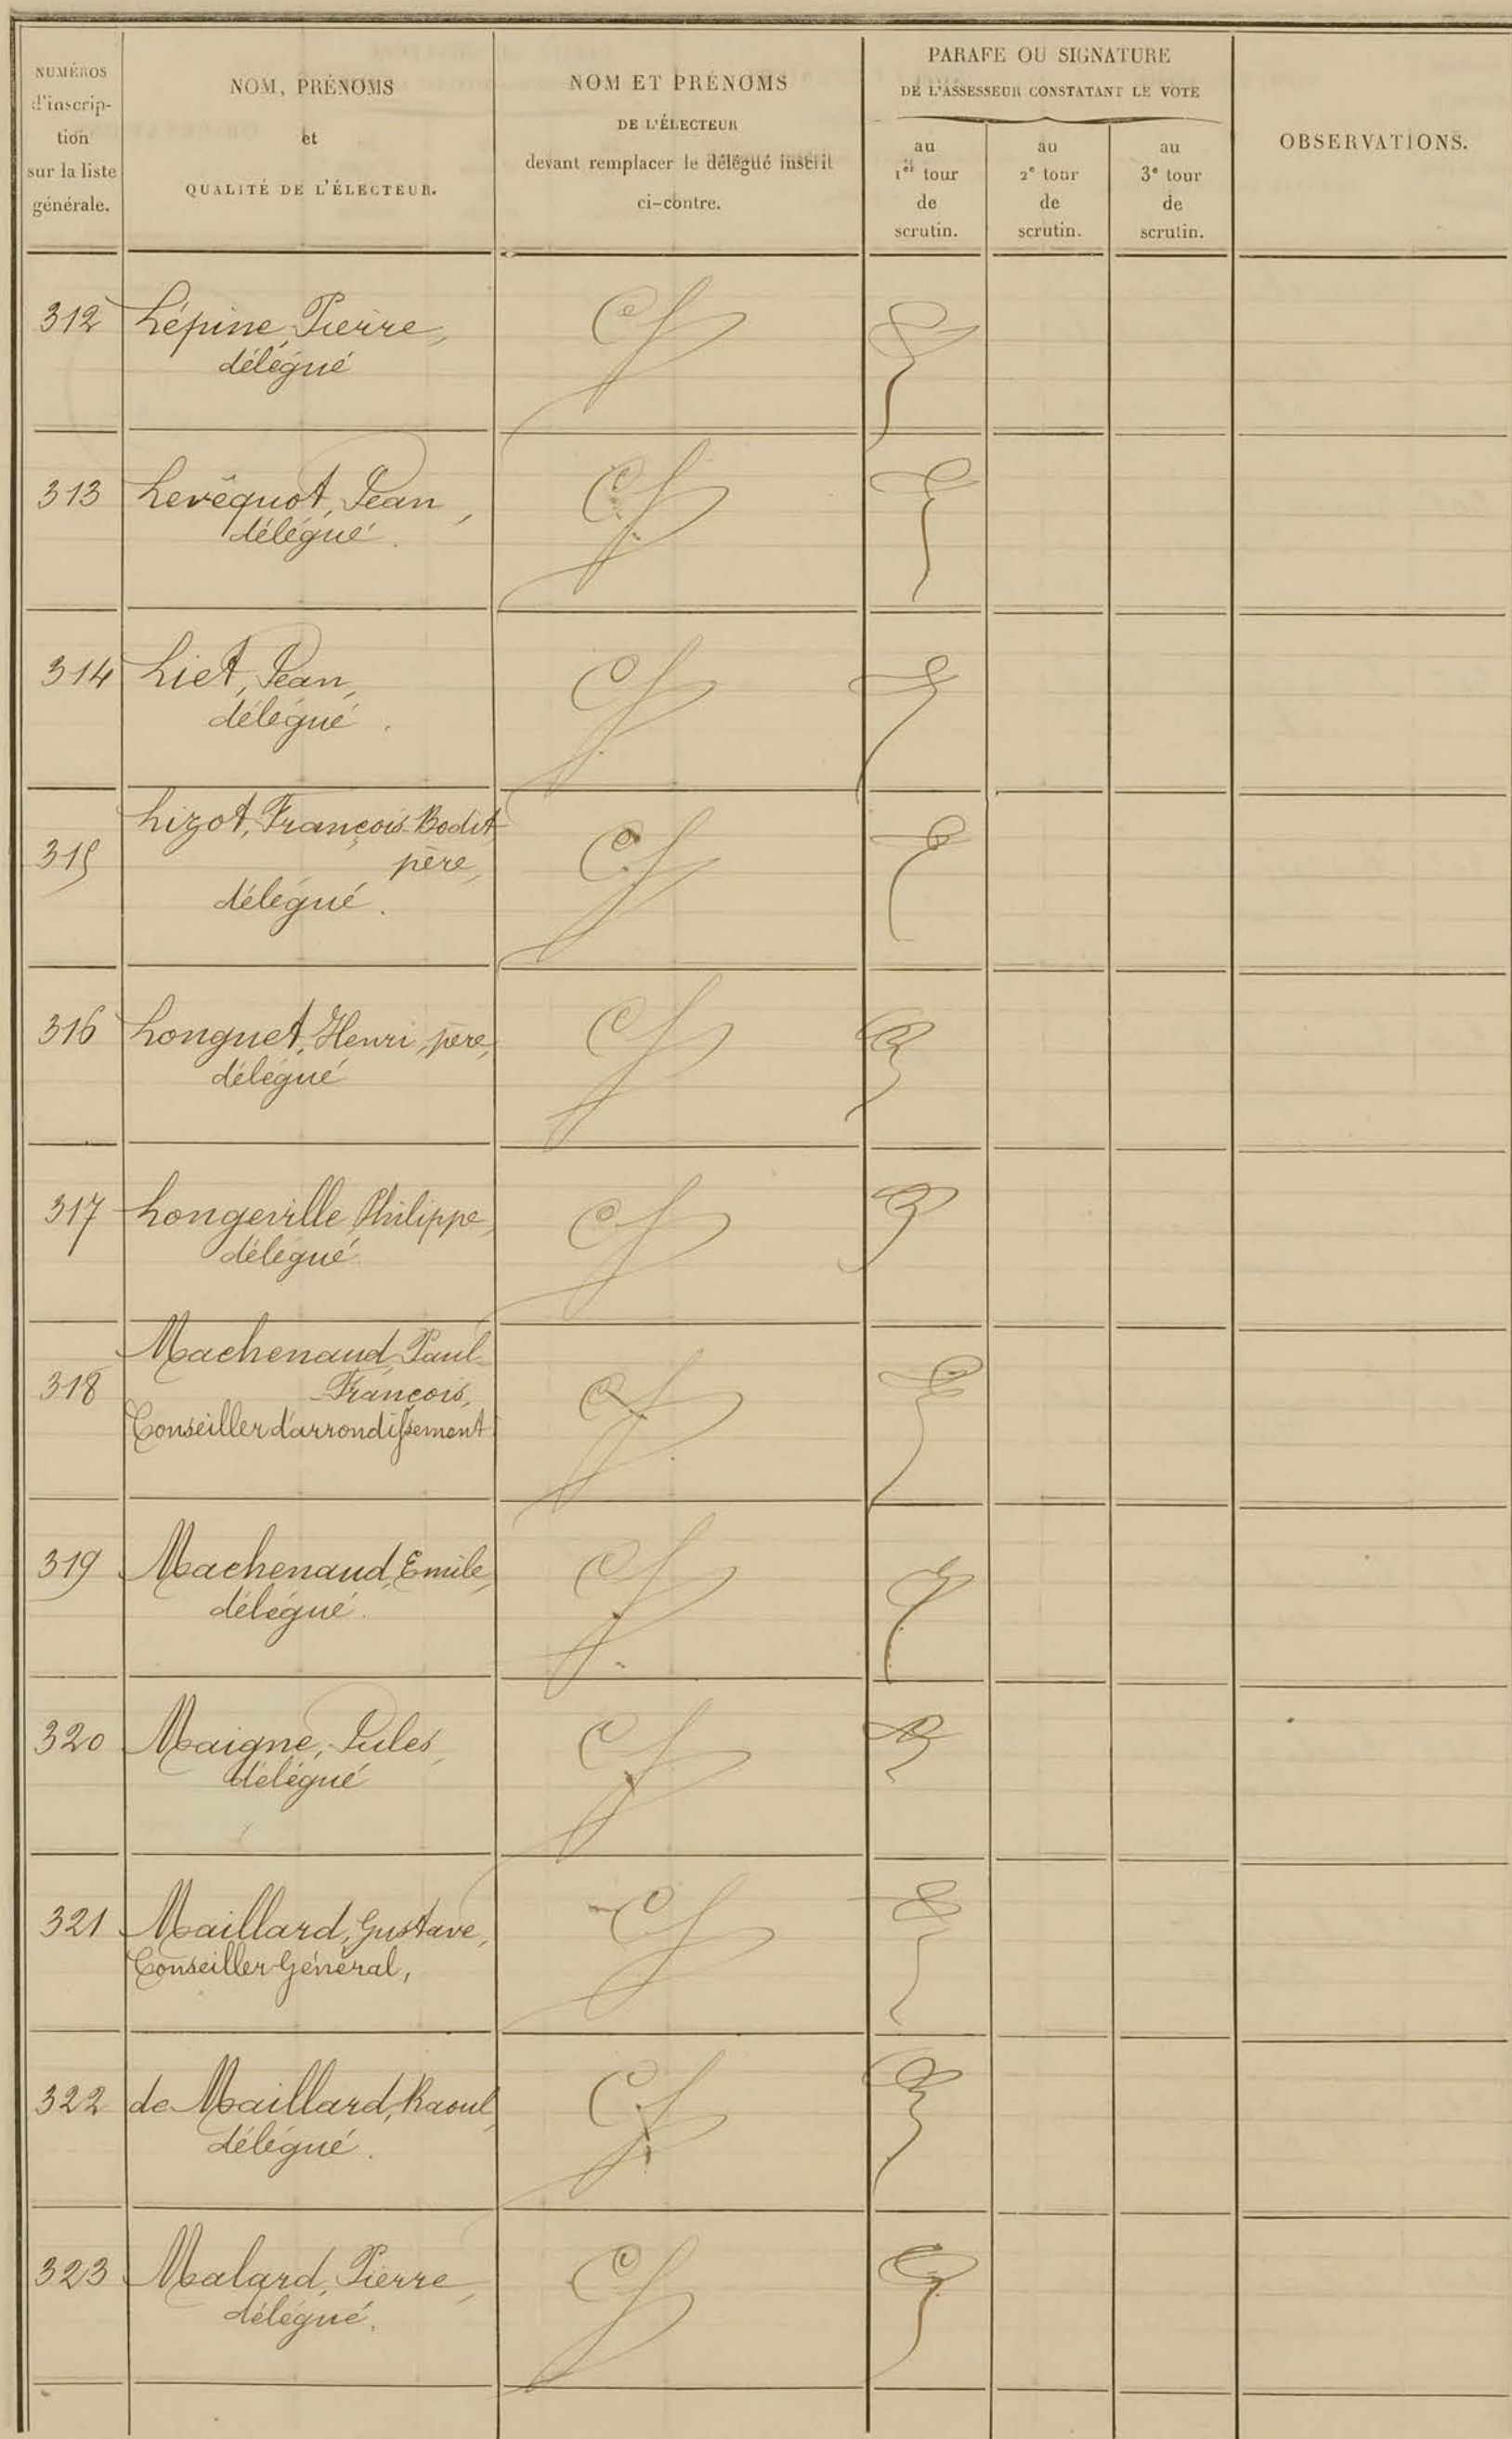 NUMÉROS
d'inscrip-
tion
sur la liste
générale.
NOM, PRÉNOMS
et
QUALITÉ DE L'ÉLECTEUR.
NOM ET PRÉNOMS
DE L'ÉLECTEUR
devant remplacer le délégué inscrit
ci-contre.
PARAFE OU SIGNATURE
DE L'ASSESSEUR CONSTATANT LE VOTE
au
1er tour
de
scrutin.
au
2e tour
de
scrutin.
au
3e tour
de
scrutin.
OBSERVATIONS.
312 Lépine, Pierre,
délégué
313 Levêquot, Jean,
délégué.
314 Liet, Jean,
délégué.
Lizot, François-Bodit,
315 père,
délégué.
316 Longuet, Henri, père,
délégué
317 Longeville, Philippe,
délégué.
Machenaud, Paul-
318 François,
Conseiller d'arrondissement
319 Machenaud, Emile,
délégué.
320 Maigne, Jules,
délégué
321 Maillard, Gustave,
Conseiller Général,
322 de Maillard, Raoul,
délégué.
323 Malard, Pierre,
délégué.